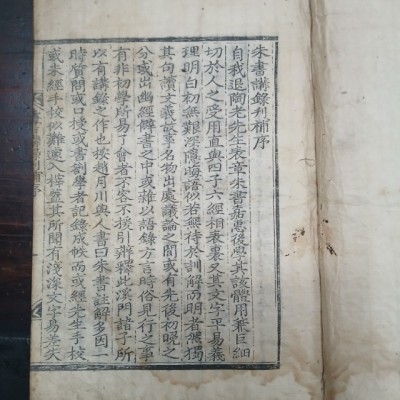 朱書講錄刊補序
自我退陶老先生表章朱書嘉惠後學其該體用兼巨細
切於人之受用直與四子六經相表裏又其文字平易義
理明白初無艱深隱晦語似若無待於訓解而明者無獨
其句讀文義故事名物出處議論之間或有先後初晚之
分或出幽經僻書之中或雜以語錄方言時俗見行之事
有非初學所易了會者不容不援引辨釋此溪門諸子所
以有講錄之作也按趙月川與人書曰朱書註解多因一
時質問或口授或書剳學者記錄成帙而或經先生手校
或未經手校似難遽入梓蓋其所聞有淺深文字易差失